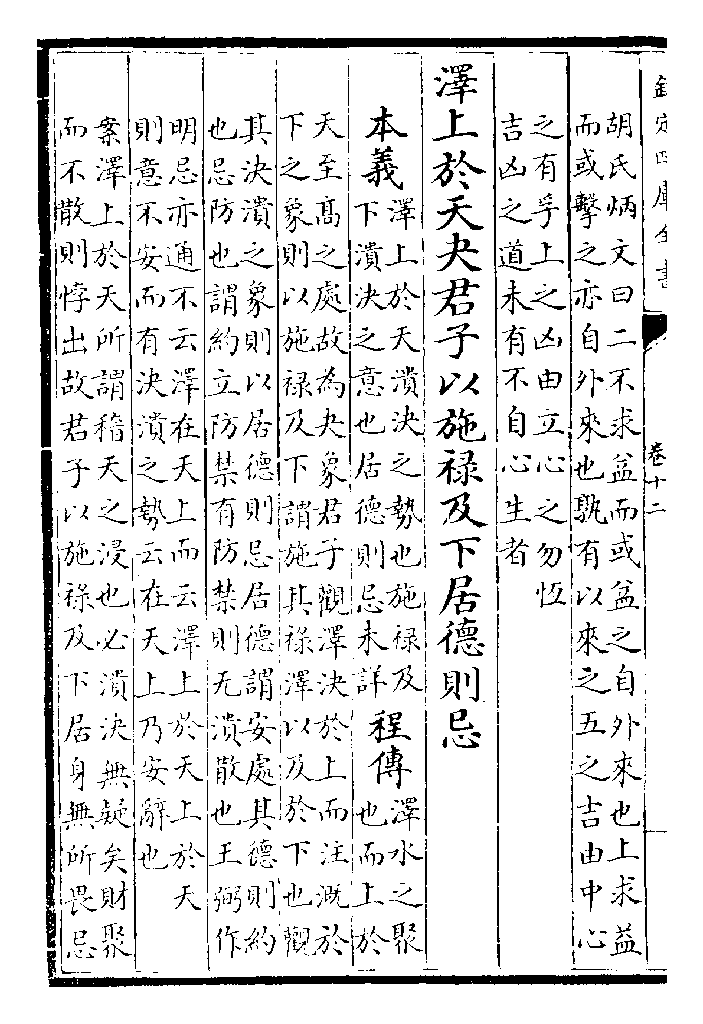 欽定四庫全書
卷十二
胡氏炳文曰二不求益而或益之自外來也上求益
而或擊之亦自外來也孰有以來之五之吉由中心
之有孚上之凶由立心之勿恆
吉凶之道未有不自心生者
澤上於天夬君子以施祿及下居德則忌
本義
澤上於天潰決之勢也施祿及
下潰決之意也居德則忌未詳
程傳
澤水之聚
也而上於
天至高之處故為夬象君子觀澤決於上而注溉於
下之象則以施祿及下謂施其祿澤以及於下也觀
其決潰之象則以居德則忌居德謂安處其德則約
也忌防也謂約立防禁有防禁則无潰散也王弼作
明忌亦通不云澤在天上而云澤上於天上於天
則意不安而有決潰之勢云在天上乃安辭也
案澤上於天所謂稽天之浸也必潰決無疑矣財聚
而不散則悖出故君子以施祿及下居身無所畏忌